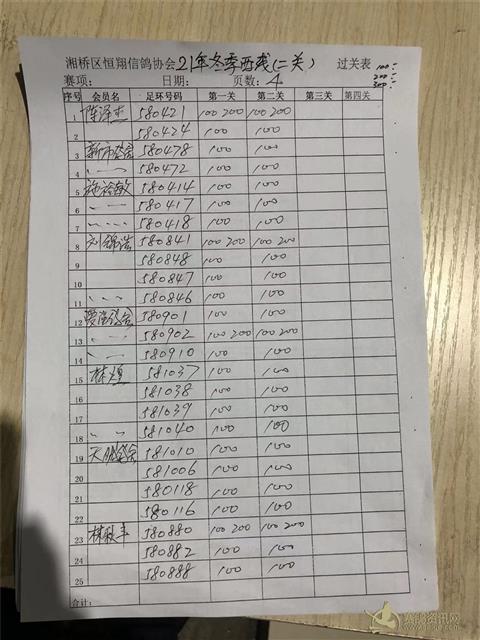 湘桥区恒翔信鸽协会 21年冬季西线(二关) 过关表 100:
200:
300:
赛项: 日期: 页数: 4
序号 会员名 足环号码 第一关 第二关 第三关 第四关
1 陈泽杰 580421 100 200 100 200
2 580424 100 100
3 580478 100 100
4 〃 580472 100 100
5 580414 100 100
6 〃 580417 100 100
7 〃 580418 100 100
8 刘锦浩 580841 100 200 100 200
9 580848 100 100
10 580847 100 100
11 〃 580846 100 100
12 580901 100 100
13 〃 580902 100 200 100 200
14 〃 580910 100 100
15 林煌 581037 100 100
16 581038 100 100
17 581039 100 100
18 〃 581040 100 100
19 581010 100 100
20 581006 100 100
21 580118 100 100
22 580116 100 100
23 林秋丰 580880 100 200 100 200
24 580882 100 100
25 580888 100 100
合计: